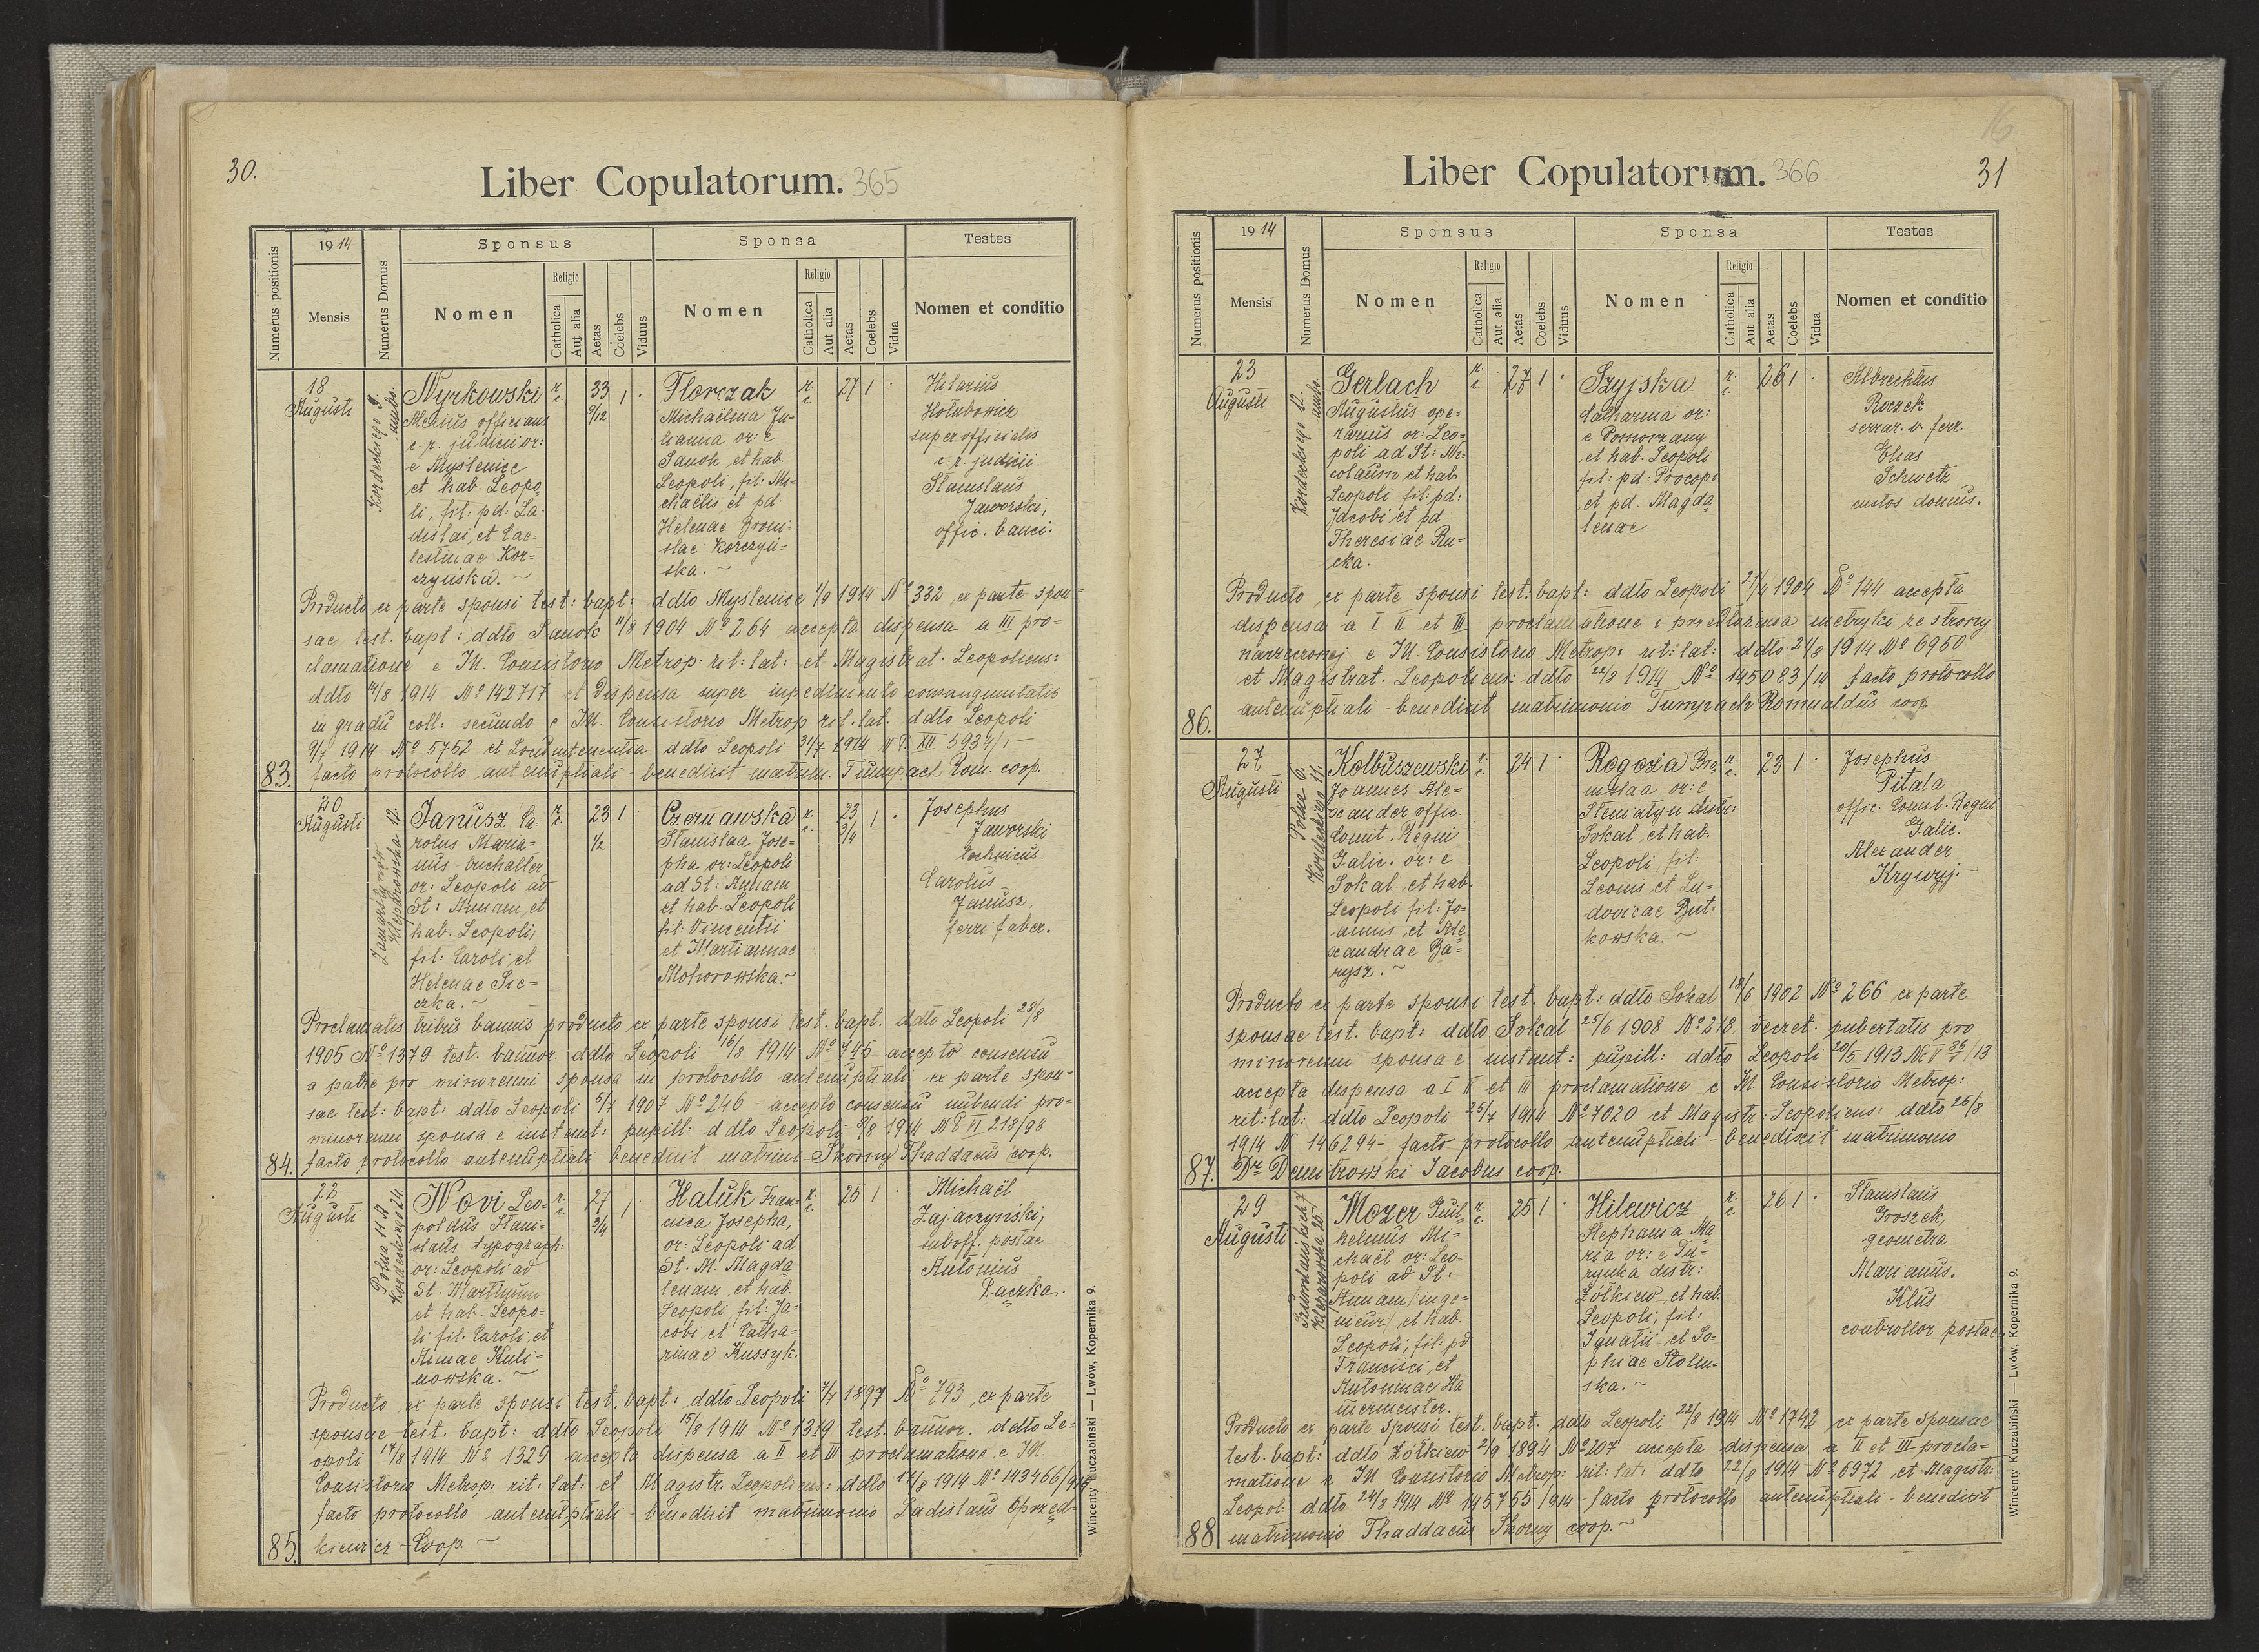 30.
Liber Copulatorum. 365
Numerus positionis
1914
Mensis
Numerus Domus
Sponsus
Nomen
Religio
Catholica
Aut alia
Aetas
Coelebs
Viduus
Sponsa
Nomen
Religio
Catholica
Aut alia
Aetas
Coelebs
Vidua
Testes
Nomen et conditio
18
Augusti
Kordeckiego 9.
ambo.
Nyrkowski
officians
c. r. judicii or:
e Myślenice
et hab. Leopo
li, fil: pd: La-
dislai, et Cae-
lestinae Kor-
czyńska. ~
r. c.
33
9/12
1
Florczak
Michaëlina Ju-
lianna or: e
Sanok et hab.
Leopoli, fil: Mi-
chaëlis et pd:
Helenae Broni-
slae Korczyń-
ska. ~
r. c.
27 1
Hilarius
Hołubowicz
super officialis
c. r. judicii.
Stanislaus
Jaworski,
offic. banci.
Producto ex parte sponsi test: bapt: ddto Myślenice 1/9 1914 Nº 332, ex parte spon-
sae test. bapt: ddto Sanok 11/8 1904 Nº 264 accepta dispensa a III pro-
clamatione e Ill. Consistorio Metrop: rit: lat: et Magistrat. Leopoliens:
ddto 14/8 1914 Nº 142717 et dispensa super impedimento consanguinitatis
in gradu coll: secundo e Ill. Consistorio Metrop rit. lat. ddto Leopoli
9/7 1914 Nº 5752 et Locumtenentia ddto Leopoli 31/7 1914 XII 5934/1 -
83. facto protocollo antenuptiali - benedixit matrim. Tumpach Rom. coop.
20
Augusti
Kleparowska 12.
Janusz Ca-
rolus Maria-
nus - buchalter
or: Leopoli ad
St: Annam, et
hab. Leopoli,
fil: Caroli et
Helenae Sie-
czka. ~
r. c.
23 1
1/2
Czernawska
Stanislaa Jose-
pha or: Leopoli
ad St: Annam
et hab. Leopoli
fil: Vincentii
et Martiannae
Mohorowska. ~
r. c.
23
3/4
1
Josephus
Jaworski
technicus.
Carolus
Janusz,
ferri faber.
Proclamatis tribus bannis producto ex parte sponsi test. bapt. ddto Leopoli 28/8
1905 Nº 1379 test. bannor. ddto Leopoli 16/8 1914 Nº 745 accepto consensu
a patre pro minorenni sponsa in protocollo antenuptiali ex parte spon-
sae test: bapt: ddto Leopoli 5/7 1907 Nº 246 - accepto consensu nubendi pro-
minorenni sponsa e instant: pupill: ddto Leopoli 8/8 1914 218/98
84. facto protocollo antenuptiali benedixit matrim - Skorny Thaddaeus coop.
22
Augusti
Polna 11 A
Kordeckiego 24.
Novi Leo-
poldus Stani-
slaus typograph:
or: Leopoli ad
St. Martinum
et hab. Leopo-
li fil. Caroli, et
Annae Kuli-
nowska. ~
r. c.
27
3/4
1
Haluk Fran-
cisca Josepha,
or: Leopoli ad
St. M. Magda
lenam, et hab.
Leopoli fil: Ja-
cobi, et Catha-
rinae Kussyk.
r. c.
25 1
Michaël
Zajączyński,
suboff. postae
Antonius
Pączka.
Producto ex parte sponsi test. bapt: ddto Leopoli 7/4 1897 Nº 793, ex parte
sponsae test. bapt: ddto Leopoli 15/8 1914 Nº 1319 test. bannor. ddto Le-
opoli 17/8 1914 Nº 1329 accepta dispensa a II et III proclamatione e Ill.
Consistorio Metrop: rit: lat: et Magistr. Leopoliens: ddto 18/8 1914 Nº 143466/914
facto protocollo antenuptiali - benedixit matrimonio Ladislaus Oprzęd-
85. kiewicz - Coop. ~
Wincenty Kuczabiński — Lwów, Kopernika 9.
16
31
Liber Copulatorum. 366
Numerus positionis
1914
Mensis
Numerus Domus
Sponsus
Nomen
Religio
Catholica
Aut alia
Aetas
Coelebs
Viduus
Sponsa
Nomen
Religio
Catholica
Aut alia
Aetas
Coelebs
Vidua
Testes
Nomen et conditio
23
Augusti
Kordeckiego 12.
ambo.
Gerlach
Augustus ope-
rarius or: Leo-
poli ad St: Ni-
colaum et hab.
Leopoli fil: pd:
Jacobi et pd
Theresiae Ru-
cka.
r. c.
27 1
Szyjska
Catharina or:
e Pomorzany
et hab. Leopoli
fil: pd: Procopi
et pd: Magda
lenae
r. c.
26 1
Albrechtus
Roczek
serrar. v. ferr.
Elias
Schwetz
custos domus.
Producto ex parte sponsi test: bapt: ddto Leopoli 21/4 1904 Nº 144 accepta
dispensa a I II et III proclamatione i przedłożenia metryki ze strony
narzeczonej e Ill Consistorio Metrop: rit: lat: ddto 21/8 1914 Nº 6950
et Magistrat. Leopoliens: ddto 22/8 1914 Nº 145083/14 facto protocollo
86. antenuptiali - benedixit matrimonio Tumpach Romualdus coop
27
Augusti
Polna 6.
Kordeckiego 11.
Kolbuszewski
Joannes Ale-
xander offic.
Comit. Regni
Galic. or: e
Sokal et hab.
Leopoli fil: Jo-
annis, et Ale
xandrae Ba-
rysz. ~
r. c.
24 1
Rogozia Bro
nislaa or: e
distr:
Sokal, et hab.
Leopoli, fil:
Leonis et Lu-
dovicae Rut-
kowska. ~
r. c.
23 1
Josephus
Pitala
offic. Comit. Regni
Galic.
Alexander
Krywyj. -
Producto ex parte sponsi test. bapt: ddto Sokal 18/6 1902 Nº 266, ex parte
sponsae test. bapt: ddto Sokal 25/6 1908 Nº 218, decret. pubertatis pro
minorenni sponsa e instant: pupill: ddto Leopoli 20/5 1913 Nc V 86/1/13
accepta dispensa a I II et III proclamatione e Ill Consistorio Metrop:
rit: lat: ddto Leopoli 25/7 1914 Nº 7020 et Magistr: Leopoliens: ddto 26/8
1914 N 146294 - facto protocollo antenuptiali - benedixit matrimonio
87. Dr Dembrowski Jacobus coop.
29
Augusti
Szumlańskich 7
Kleparowska 25.
Mozer Guil-
helmus Mi-
chaël or: Leo-
poli ad St:
Annam (inge-
nieur) et hab.
Leopoli, fil: pd
Francisci, et
Antoninae Ha
mermeister.
r. c.
25 1
Hilewicz
Stephania Ma
ria or: e Tu-
rynka distr:
Żółkiew, et hab
Leopoli, fil:
Ignatii et So-
phiae Stolin-
ska. ~
r. c.
26 1
Stanislaus
Groszek,
geometra
Marianus.
Klus
controllor postae
Producto ex parte sponsi test. bapt: ddto Leopoli 22/8 1914 Nº 1742 ex parte sponsae
test. bapt: ddto Żółkiew 2/9 1894 Nº 207 accepta dispensa a II et III procla-
matione e Ill Consistorio Metrop: rit: lat: ddto 22/8 1914 Nº 6972 et Magistr:
Leopol: ddto 24/8 1914 Nº 145755/914 - facto protocollo antenuptiali - benedixit
88 matrimonio Thaddaeus Skorny coop. ~
Wincenty Kuczabiński — Lwów, Kopernika 9.